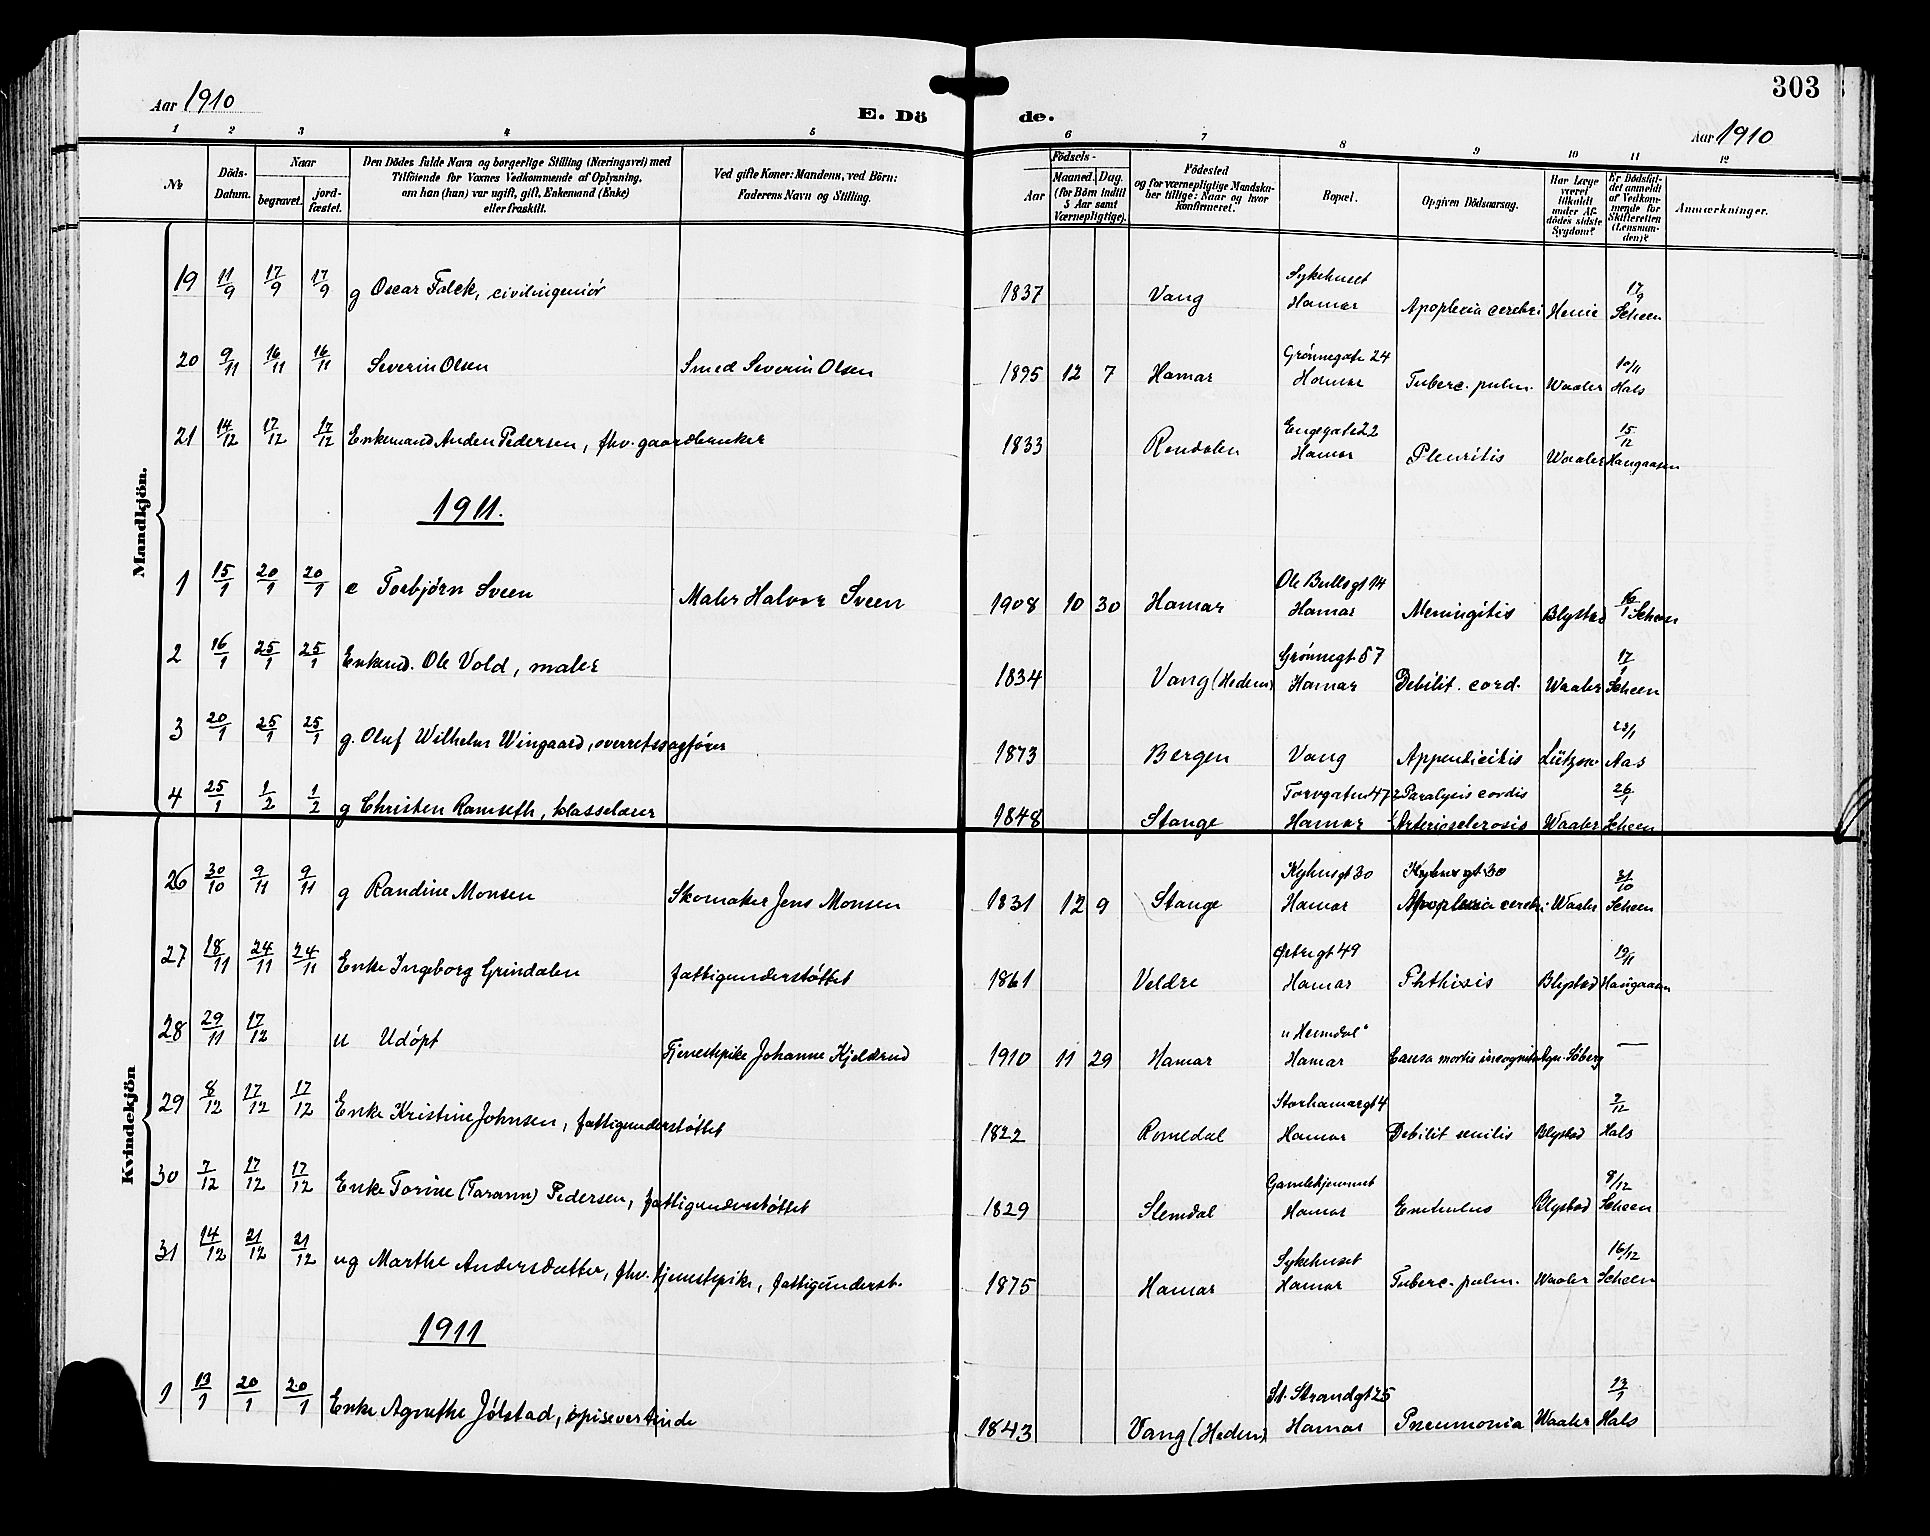 303
Aar 1910
E. Dö de.
Aar 1910
1 2 3 4 5 6 7 8 9 10 11 12
№
Döds-Datum.
Naar
begravet.
jord-fæstet.
Den Dödes fulde Navn og borgerlige Stilling (Næringsvei) med
Tilföiende for Voxnes Vedkommende af Oplysning,
om han (hun) var ugift, gift, Enkemand (Enke)
eller fraskilt.
Ved gifte Koner: Mandens, ved Börn:
Faderens Navn og Stilling.
Födsels-
Aar
Maaned. Dag.
(for Börn indtil
5 Aar samt
Værnepligtige).
Födested
og for værnepligtige Mandska-
ber tillige: Naar og hvor
konfirmeret.
Bopæl.
Opgiven Dödsaarsag.
Har Læge
været
tilkaldt
under Af-
dödes sidste
Sygdom?
Er Dödsfal-
det anmeldt
af Vedkom-
mende for
Skifteretten
(Lensman-
den)?
Anmærkninger.
Mandkjön.
19 11/9 17/9 17/9 g Oscar Falck, civilingeniör 1837 Vang Sykehuset Hamar Apoplexia cerebri Henie 17/9 Scheen
20 9/11 16/11 16/11 Severin Olsen Smed Severin Olsen 1895 12 7 Hamar Grönnegate 24 Hamar Tuberc. pulm. Waaler 10/11 Hals
21 14/12 17/12 17/12 Enkemand Anden Pedersen, fhv. gaardbruker 1833 Rendalen Engegate 22 Hamar Pleuritis Waaler 15/12 Haugaasen
1911.
1 15/1 20/1 20/1 e Torbjörn Sveen Maler Halvor Sveen 1908 10 30 Hamar Ole Bullsgt 14 Hamar Meningitis Blystad 16/1 Scheen
2 16/1 25/1 25/1 Enkemd. Ole Vold, maler 1834 Vang (Hedem) Grönnegt 57 Hamar Debilit. cord. Waaler 17/1 Scheen
3 20/1 25/1 25/1 g. Oluf Wilhelm Wingaard, overretssagförer 1873 Bergen Vang Appendicitis Lützow 23/1 Aas
4 25/1 1/2 1/2 g Christen Ramseth, klasselærer 1848 Stange Torvgaten 47 Hamar Paralysis cordis Arteriosclerosis Waaler 26/1 Scheen
Kvindekjön
26 30/10 9/11 9/11 g Randine Monsen Skomaker Jens Monsen 1831 12 9 Stange Kyhnsgt 30 Hamar Kyhnsgt 30 Apoplexia cerebri Waaler 31/10 Scheen
27 18/11 24/11 24/11 Enke Ingeborg Grindalen fattigunderstöttet 1861 Veldre Østregt 49 Hamar Phthisis Blystad 19/11 Haugaasen
28 29/11 17/12 u Udöpt Tjenestepike Johanne Kjeldsrud 1910 11 29 Hamar "Heimdal" Hamar Causa mortis incognita Söberg —
29 8/12 17/12 17/12 Enke Kristine Johnsen, fattigunderstöttet 1822 Romedal Storhamargt 4 Hamar Debilit senilis Blystad 9/12 Hals
30 7/12 17/12 17/12 Enke Torine (Tarann) Pedersen, fattigunderstöttet 1829 Slemdal Gamlehjemmet Hamar Embolus Blystad 8/12 Scheen
31 14/12 21/12 21/12 ug Marthe Andersdatter, fhv. tjenestepike, fattigunderst. 1875 Hamar Sykehuset Hamar Tuberc. pulm. Waaler 16/12 Scheen
1911
1 13/1 20/1 20/1 Enke Agnethe Jölstad, spisevertinde 1843 Vang (Hedem) St. Strandgt 25 Hamar Pneumonia Waaler 13/1 Hals